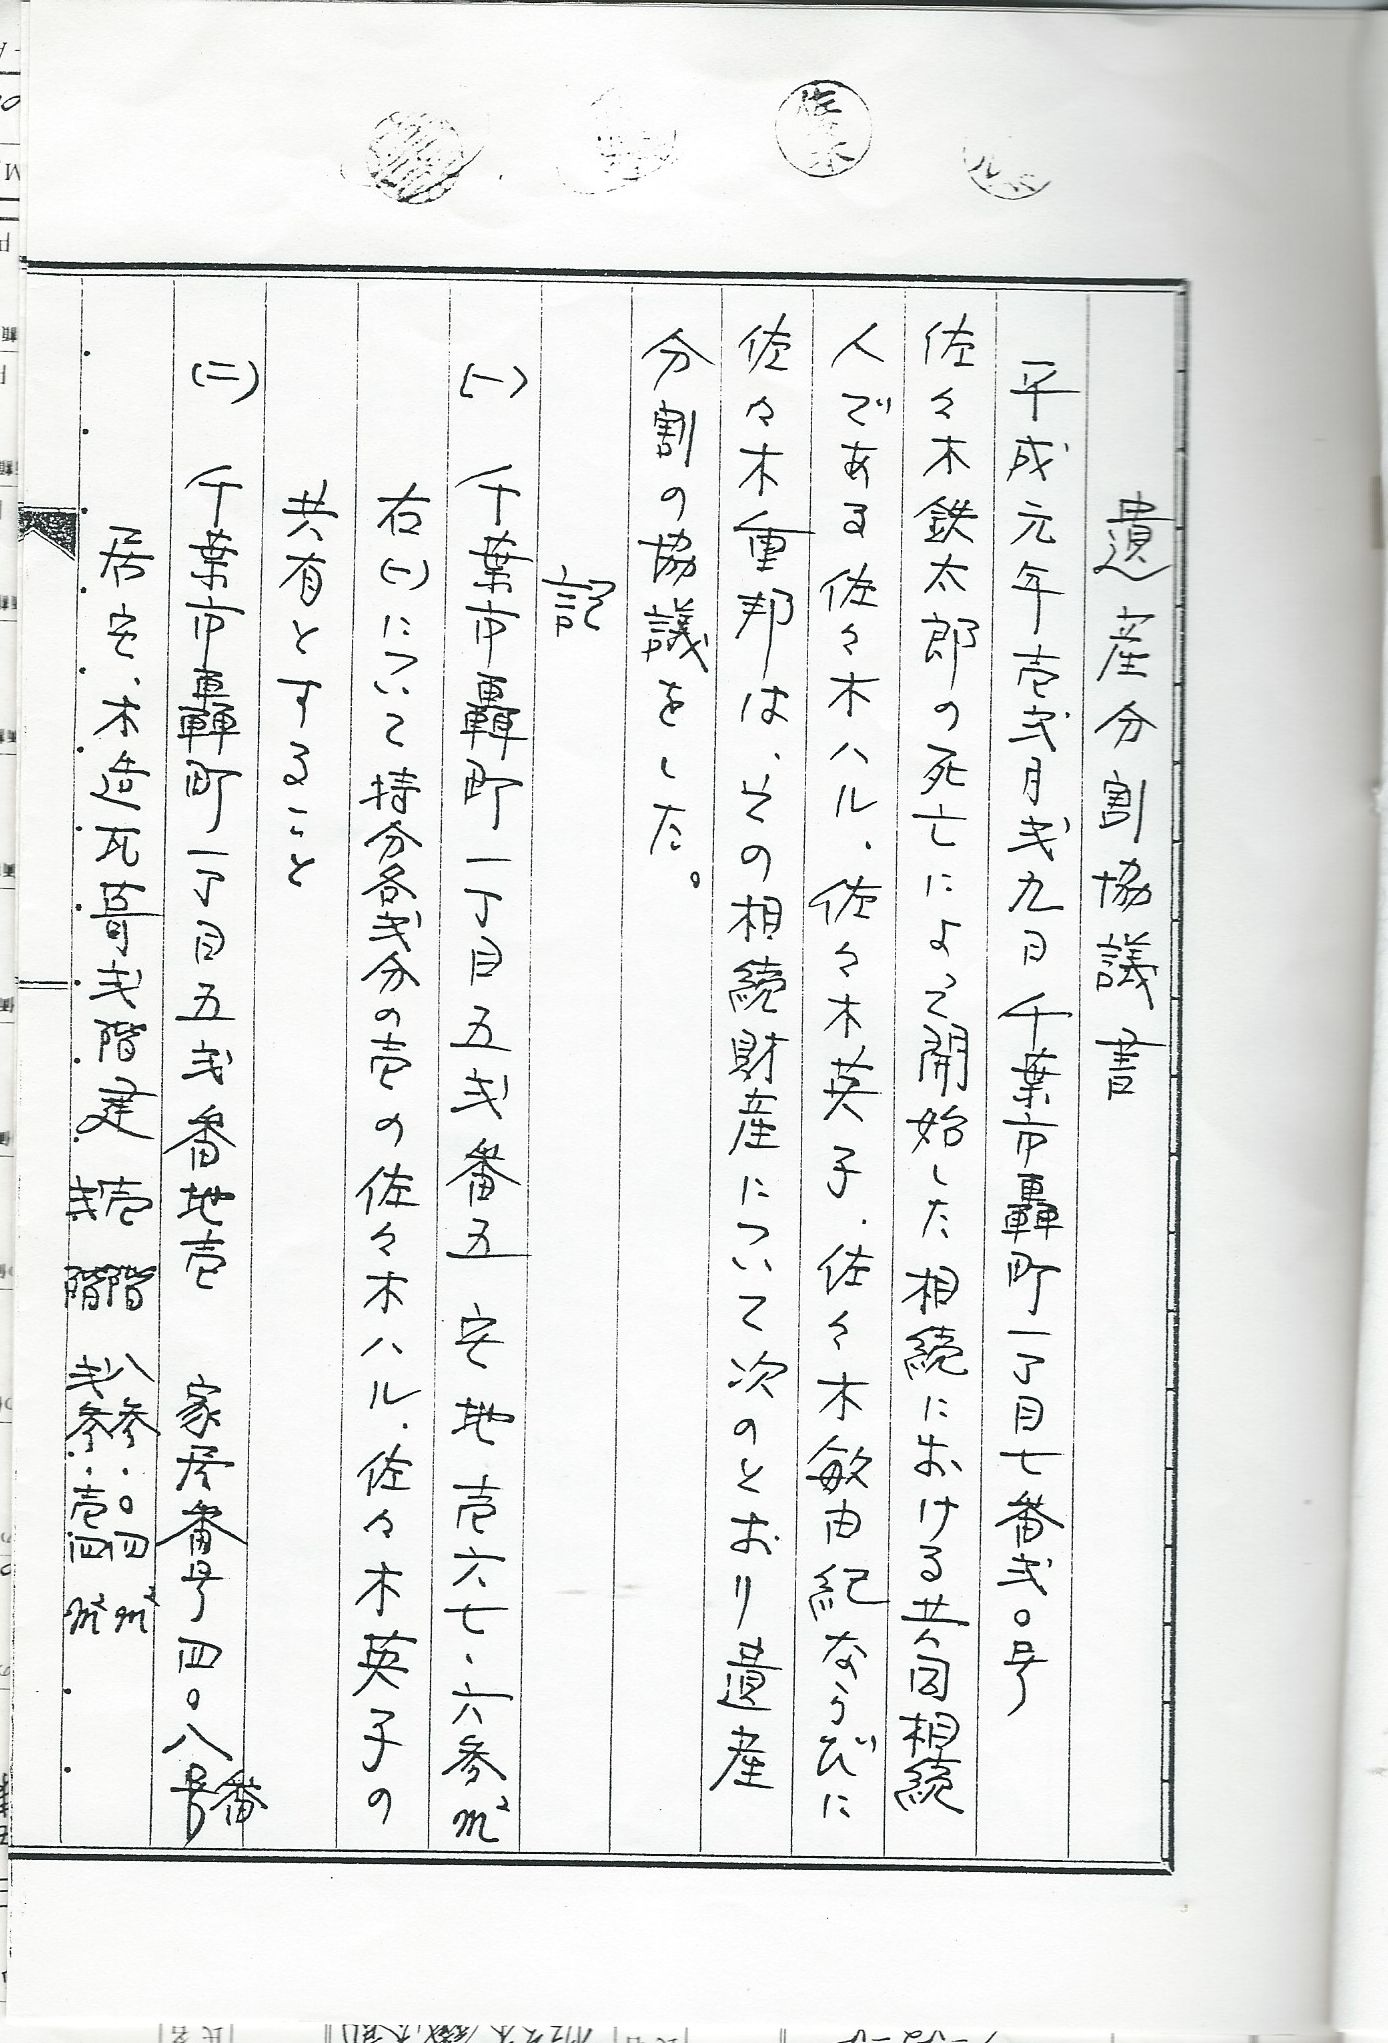 遺産分割協議書
平成元年壱弐月弐九日千葉市轟町一丁目七番弐〇号
佐々木鉄太郎の死亡によって開始した相続における共同相続
人である佐々木ハル、佐々木英子、佐々木敏由紀ならびに
佐々木重邦は、その相続財産について次のとおり遺産
分割の協議をした。
記
(一) 千葉市轟町一丁目五弐番五 宅地 壱六七・六参m²
右(一)について持分各弐分の壱の佐々木ハル、佐々木英子の
共有とすること
(二) 千葉市轟町一丁目五弐番地壱 家屋番号四〇八番号
居宅、木造瓦葺弐階建 壱階 八参・〇四m²
弐階 弐参・壱四m²
佐々木